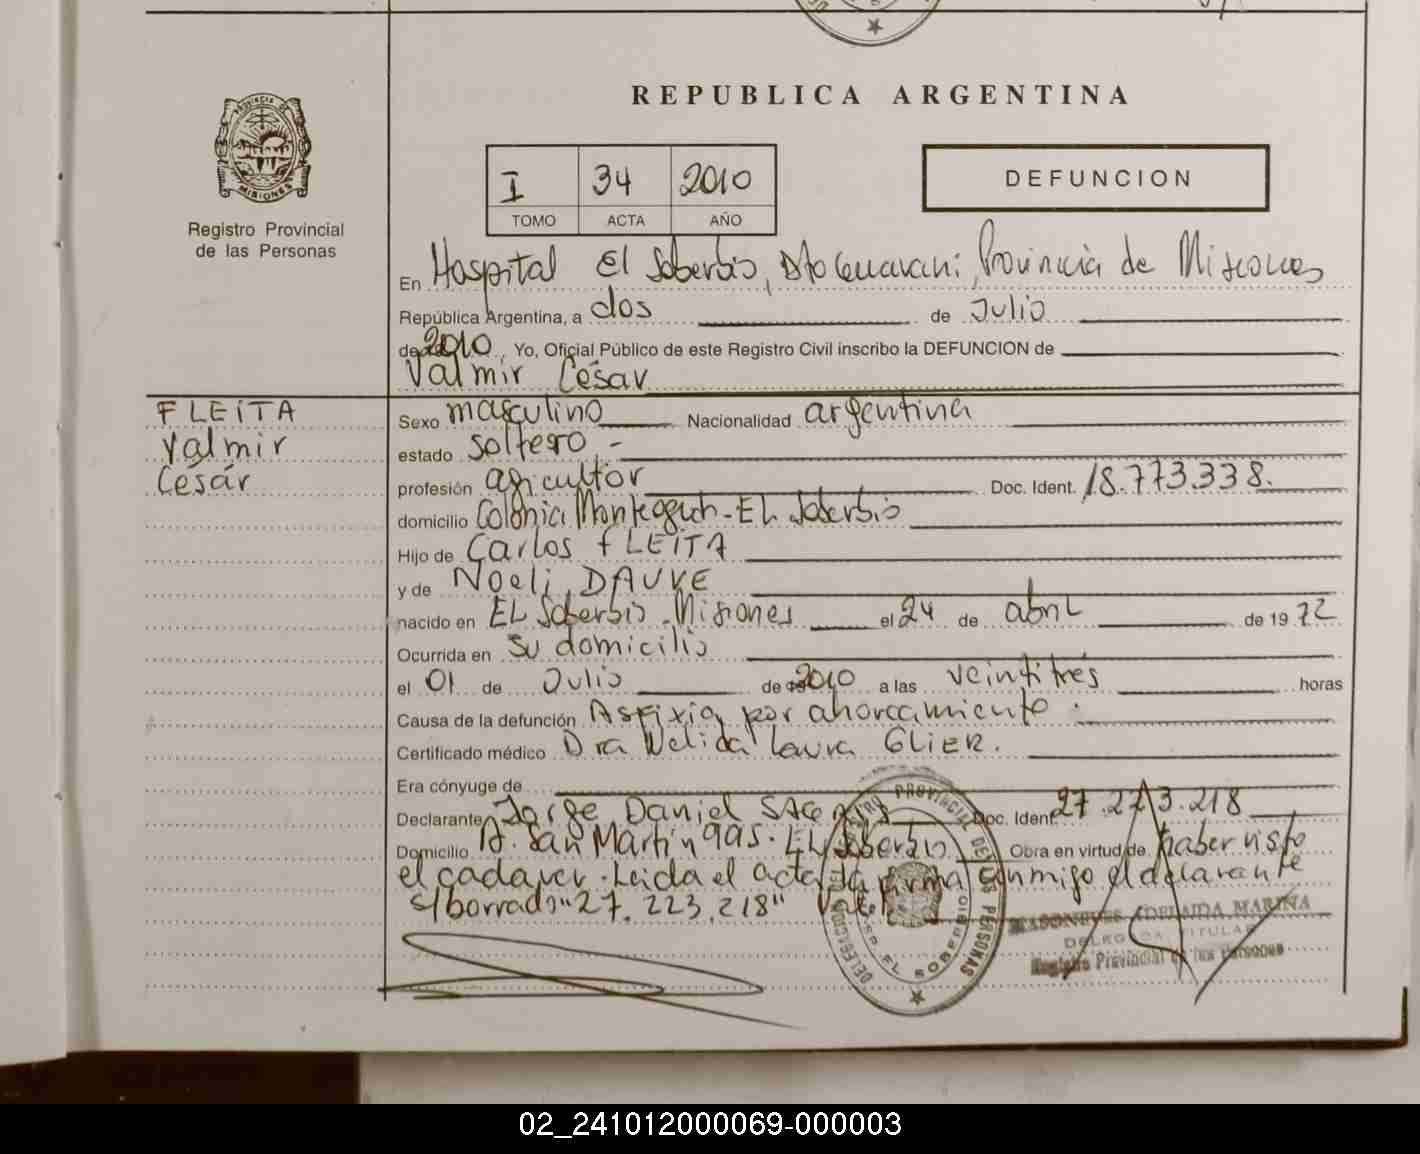 REPUBLICA ARGENTINA
PROVINCIA DE
MISIONES
Registro Provincial
de las Personas
I 34 2010
TOMO ACTA AÑO
DEFUNCION
En Hospital El Soberbio, Dto Guarani, Provincia de Misiones
República Argentina, a dos de Julio
de 2010, Yo, Oficial Público de este Registro Civil inscribo la DEFUNCION de
Valmir César
FLEITA
Valmir
César
Sexo masculino Nacionalidad argentina
estado soltero -
profesión agricultor Doc. Ident. 18.773.338.
domicilio Colonia - EL Soberbio
Hijo de Carlos FLEITA
y de Noeli DAUVE
nacido en EL Soberbio - Misiones el 24 de abril de 1972
Ocurrida en su domicilio
el 01 de Julio de 2010 a las veintitrés horas
Causa de la defunción Asfixia por ahorcamiento.
Certificado médico Dra Nelida Laura GLIER.
Era cónyuge de
Declarante Jorge Daniel Doc. Ident. 27.223.218
Domicilio A. San Martín 995 - EL Soberbio Obra en virtud de haber visto
el cadaver. Leida el acta la firma conmigo el declarante
s/borrado "27.223.218" Vale
REGISTRO PROVINCIAL DE LAS PERSONAS
DELEGACION
EL SOBERBIO
ADELAIDA MARINA
DELEGADA TITULAR
Registro Provincial de las Personas
02_241012000069-000003